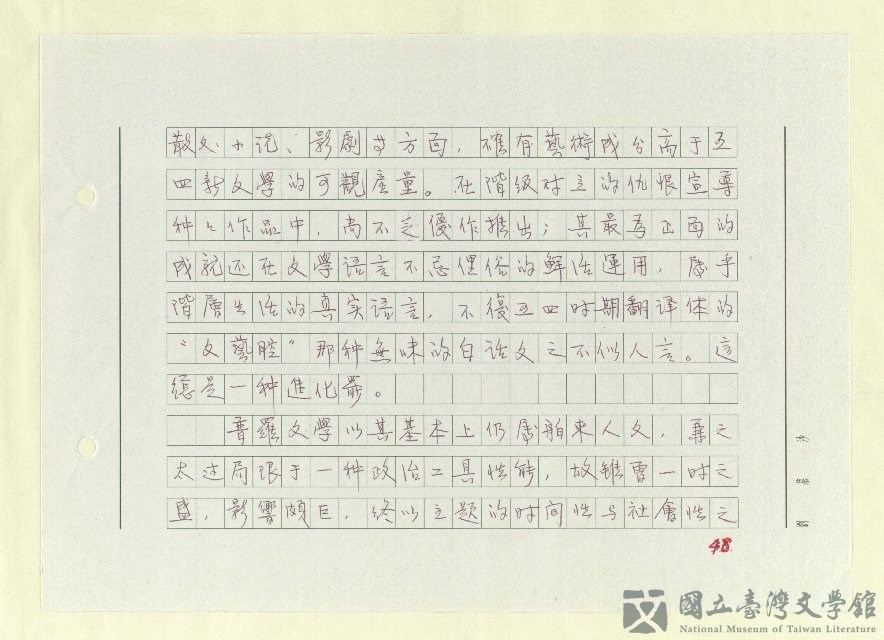 散文、小说、影劇等方面，確有藝術成分高于五
四新文學的可觀产量。在階級对立的仇恨宣導
种々作品中，尚不乏優作推出；其最為正面的
成就还在文學語言不忌俚俗的鮮活運用，屬乎
階層生活的真实語言，不復五四时期翻译体的
“文藝腔”那种無味的白话文之不似人言。這
總是一种進化罷。
普羅文學以其基本上仍屬舶來人文，兼之
太过局限于一种政治工具性能，故雖曹一时之
盛，影響頗巨，終以主題的时间性与社會性之
48
國立臺灣文學館
National Museum of Taiwan Literature